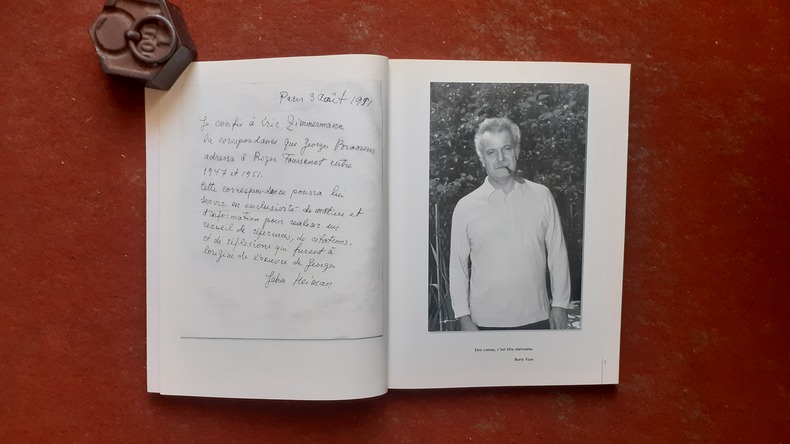 Paris 3 Août 1991
Je confie à Eric Zimmermann
la corespondance que Georges Brassens
adressa à Roger Toussenot entre
1947 et 1951.
Cette correspondance pourra lui
servir en exclusivité de matière et
d'information pour realiser un
recueil de références, de citations,
et de réflexions qui furent à
l'origine de l'oeuvre de Georges
Heiman
Etre connu, c'est être méconnu.
Boris Vian